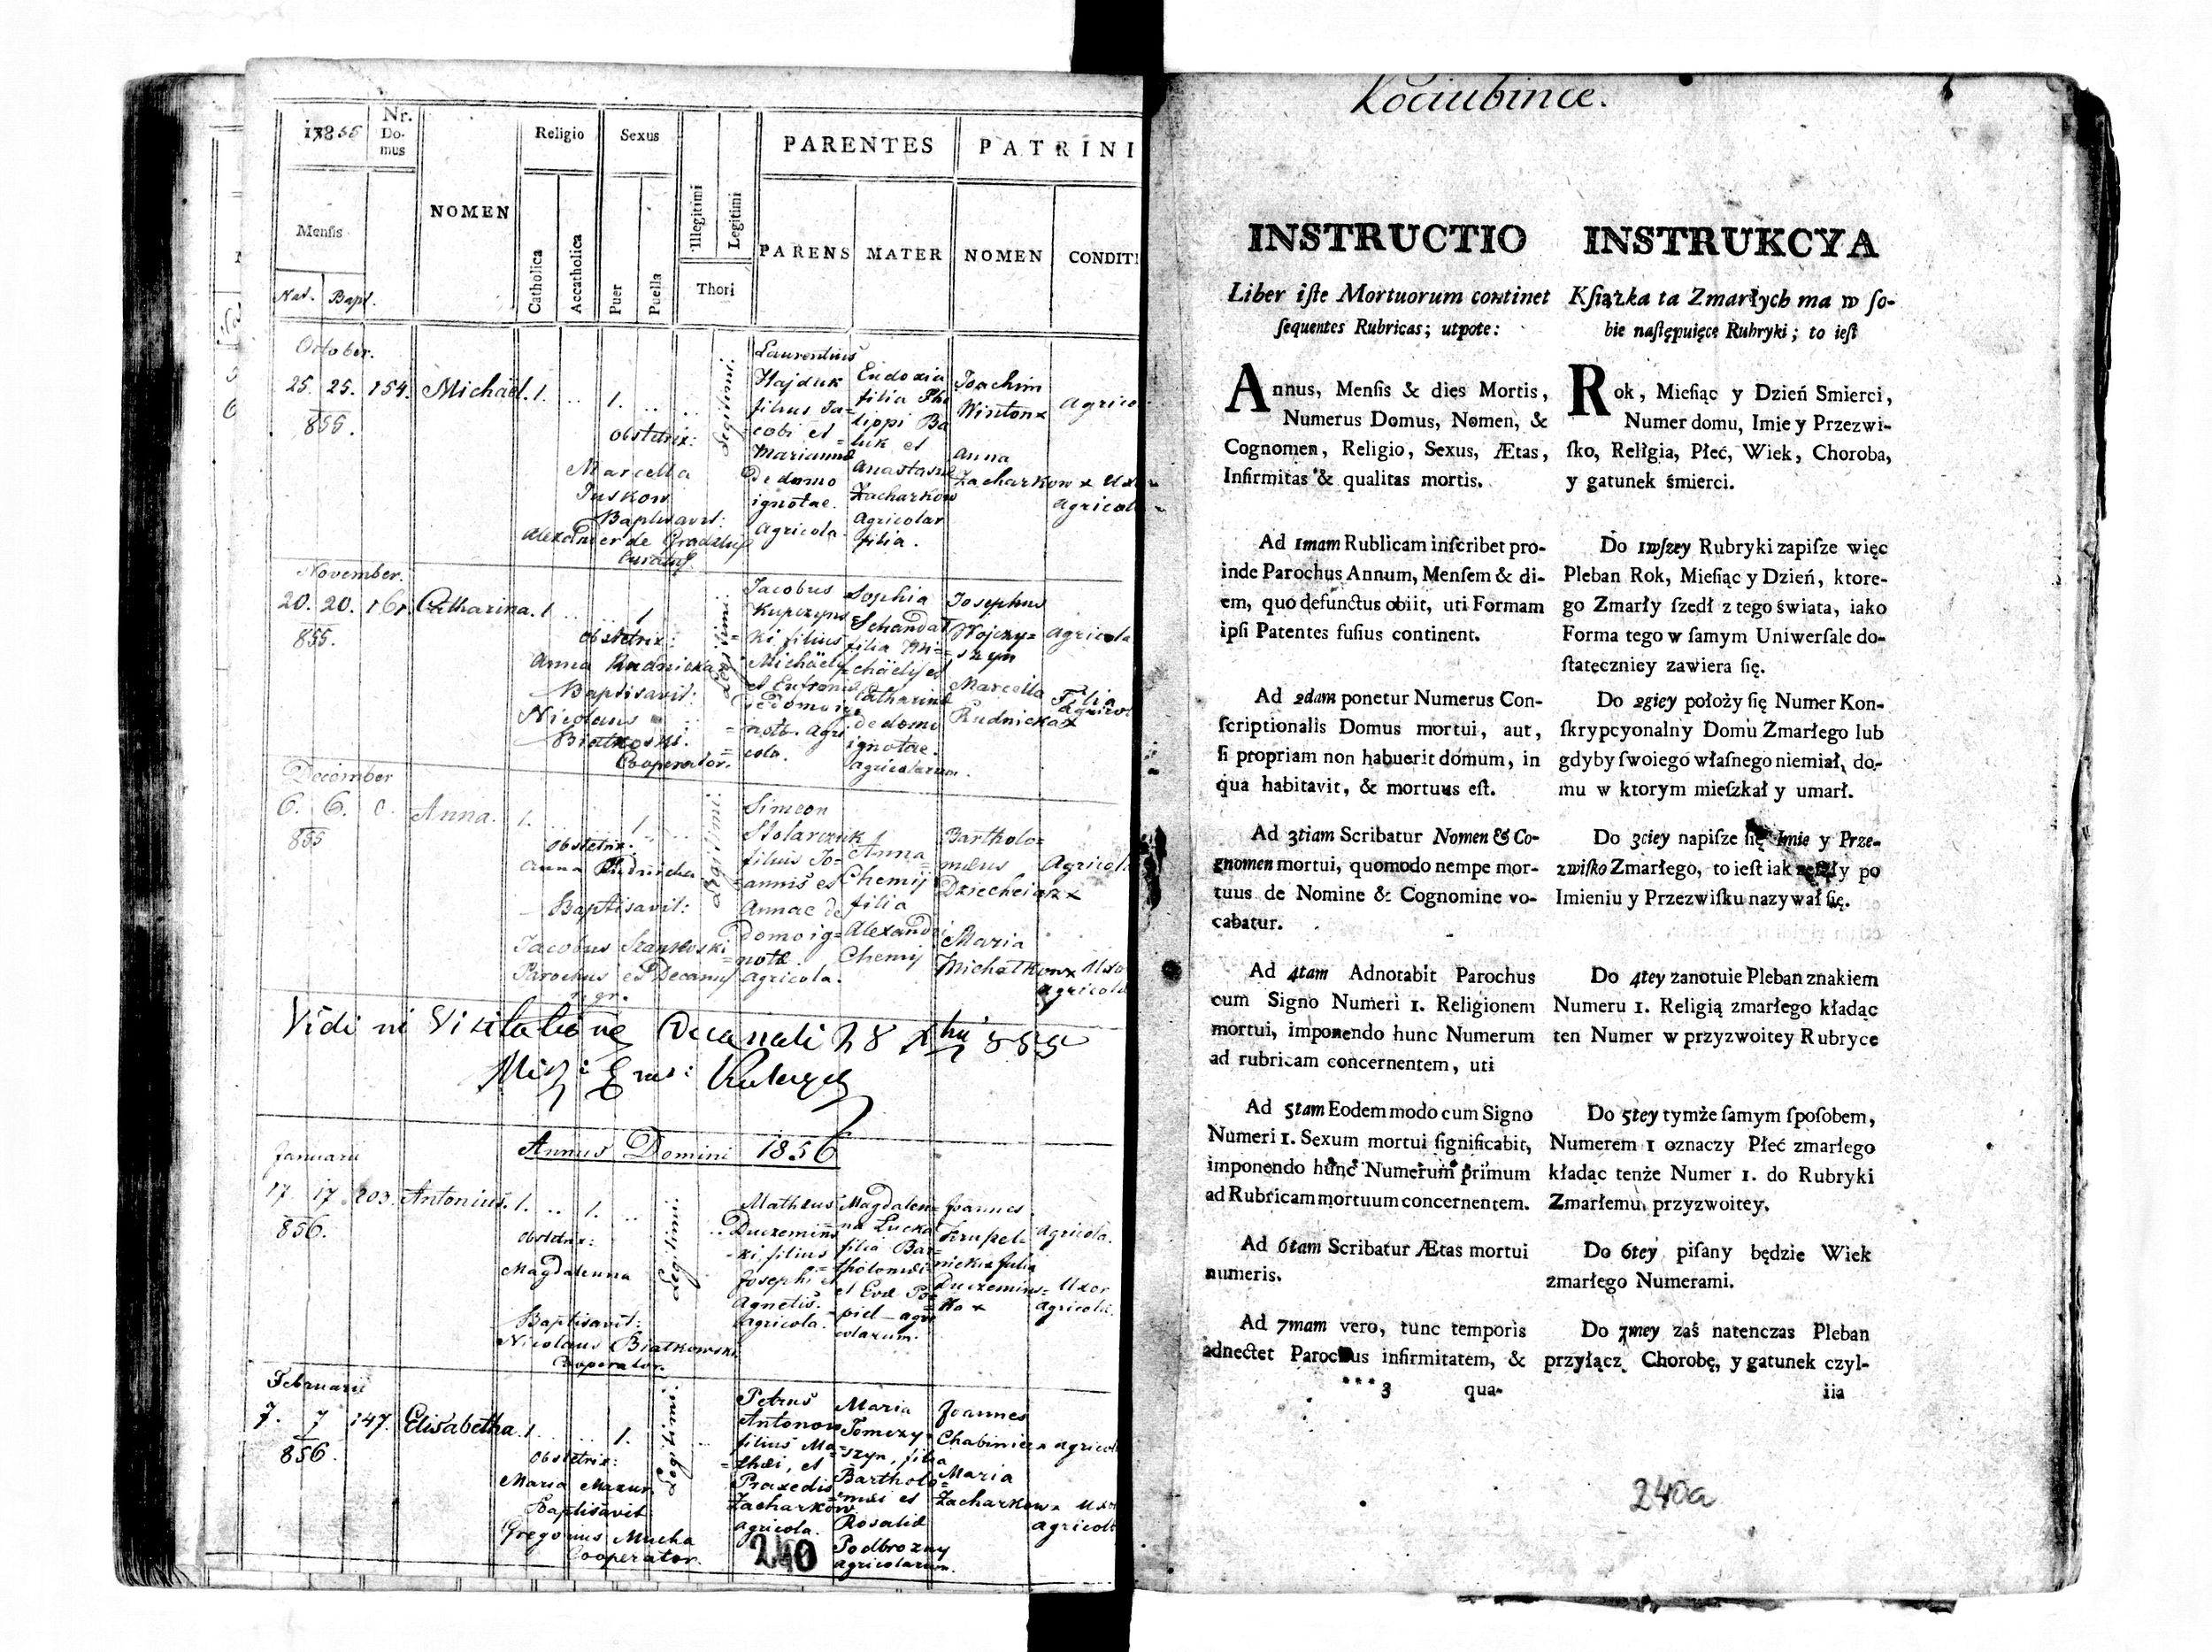 1855
Nr. Do-
mus
NOMEN
Religio
Sexus
Illegitimi
Legitimi
PARENTES
PATRINI
Mensis
Catholica
Accatholica
Puer
Puella
Thori
PARENS
MATER
NOMEN
CONDITI
Nat. Bapt.
October.
25. 25. 154. Michäel. 1. .. 1. .. ..
855.
Legitimi:
Obstetrix:
Marcella
Juskow
Baptisavit:
Alexander de
Laurentius
Hajduk
filius Ja=
cobi et
Mariannæ
de domo
ignotae.
Agricola.
Eudoxia
filia Phi
lippi Ba
luk et
Anastasiæ
Zacharkow
Agricolar
filia.
Joachim
Winton x
Anna
Zacharkow x
Agrico
Uxo
agricol
November.
20. 20. 161. Catharina. 1 .. .. 1
855.
Legitimi:
Obstetrix:
Anna Rudnicka
Baptisavit:
Nicolaus
Białkoski.
Cooperator.
Jacobus
Kupczyns=
ki filius
Michäelis
et Eufrosinæ
de domo ig
notæ. Agri=
cola.
Sophia
Schandał
filia Mi=
chäelis et
Catharinæ
de domo
ignotae.
agricolarum.
Josephus
Wojczy=
szyn
Marcella
Rudnicka x
Agricola
Filia
agricol
December
6. 6. 0. Anna. 1. .. .. 1. ..
855
Legitimi:
Obstetrix:
Anna Rudnicka
Baptisavit:
Jacobus Szankowski
Parochus et Decanus
Simeon
Stolarczuk
filius Jo=
annis et
Annae de
domo ig=
notæ.
Agricola.
Anna
Chemij
filia
Alexandri
Chemij
Bartholo=
mæus
Dziecheiarz x
Maria
Michałkow x
Agricol
Uxo
agricola
Vidi in Visitatione Decanali 28 855
Annus Domini 1856
Januarii
17. 17. 203. Antonius. 1. .. 1. ..
856.
Legitimi:
Obstetrix:
Magdalenna
Baptisavit:
Nicolaus Białkowski
Cooperator.
Mathæus
Duczemins=
ki filius
Josephi et
Agnetis.
Agricola.
Magdalen=
na Łucka
filia Bar=
tholomæi
et Evæ Po=
piel - agri
colarum.
Joannes
Krupel=
nicki x Julia
Duczemins=
ka x
Agricola.
Uxor
Agricolæ.
Februarii
7. 7 147. Elisabetha. 1. .. .. 1.
856.
Legitimi:
Obstetrix:
Maria Mazur
Baptisavit
Gregorius Mucha
Cooperator.
Petrus
Antonow
filius Ma=
thæi, et
Praxedis
Zacharkow
Agricola.
Maria
Tomczy=
szyn, filia
Bartholo=
mæi et
Rosaliæ
Podbrozny
agricolarum.
Joannes
Chabiniez x
Maria
Zacharkow x
agricol
Uxo
agricol
240
Kociubince.
INSTRUCTIO
Liber iſte Mortuorum continet
ſequentes Rubricas; utpote:
Annus, Menſis & dies Mortis,
Numerus Domus, Nomen, &
Cognomen, Religio, Sexus, Ætas,
Infirmitas & qualitas mortis.
Ad 1mam Rublicam inſcribet pro-
inde Parochus Annum, Menſem & di-
em, quo defunctus obiit, uti Formam
ipſi Patentes fuſius continent.
Ad 2dam ponetur Numerus Con-
ſcriptionalis Domus mortui, aut,
ſi propriam non habuerit domum, in
qua habitavit, & mortuus eſt.
Ad 3tiam Scribatur Nomen & Co-
gnomen mortui, quomodo nempe mor-
tuus de Nomine & Cognomine vo-
cabatur.
Ad 4tam Adnotabit Parochus
cum Signo Numeri 1. Religionem
mortui, imponendo hunc Numerum
ad rubricam concernentem, uti
Ad 5tam Eodem modo cum Signo
Numeri 1. Sexum mortui ſignificabit,
imponendo hunc Numerum primum
ad Rubricam mortuum concernentem.
Ad 6tam Scribatur Ætas mortui
numeris.
Ad 7mam vero, tunc temporis
adnectet Parochus infirmitatem, &
***3 qua-
INSTRUKCYA
Kſiążka ta Zmarłych ma w ſo-
bie naſtępuięce Rubryki; to ieſt
Rok, Mieſiąc y Dzień Smierci,
Numer domu, Imie y Przezwi-
ſko, Religia, Płeć, Wiek, Choroba,
y gatunek śmierci.
Do 1wſzey Rubryki zapiſze więc
Pleban Rok, Mieſiąc y Dzień, ktore-
go Zmarły ſzedł z tego świata, iako
Forma tego w ſamym Uniwerſale do-
ſtateczniey zawiera ſię.
Do 2giey położy ſię Numer Kon-
ſkrypcyonalny Domu Zmarłego lub
gdyby ſwoiego właſnego niemiał, do-
mu w ktorym mieſzkał y umarł.
Do 3ciey napiſze ſię Imie y Prze-
zwiſko Zmarłego, to ieſt iak zeſzły po
Imieniu y Przezwiſku nazywał ſię.
Do 4tey zanotuie Pleban znakiem
Numeru 1. Religią zmarłego kładąc
ten Numer w przyzwoitey Rubryce
Do 5tey tymże ſamym ſpoſobem,
Numerem 1 oznaczy Płeć zmarłego
kładąc tenże Numer 1. do Rubryki
Zmarłemu przyzwoitey.
Do 6tey piſany będzie Wiek
zmarłego Numerami.
Do 7mey zaś natenczas Pleban
przyłącz Chorobę, y gatunek czyl-
iia
240a